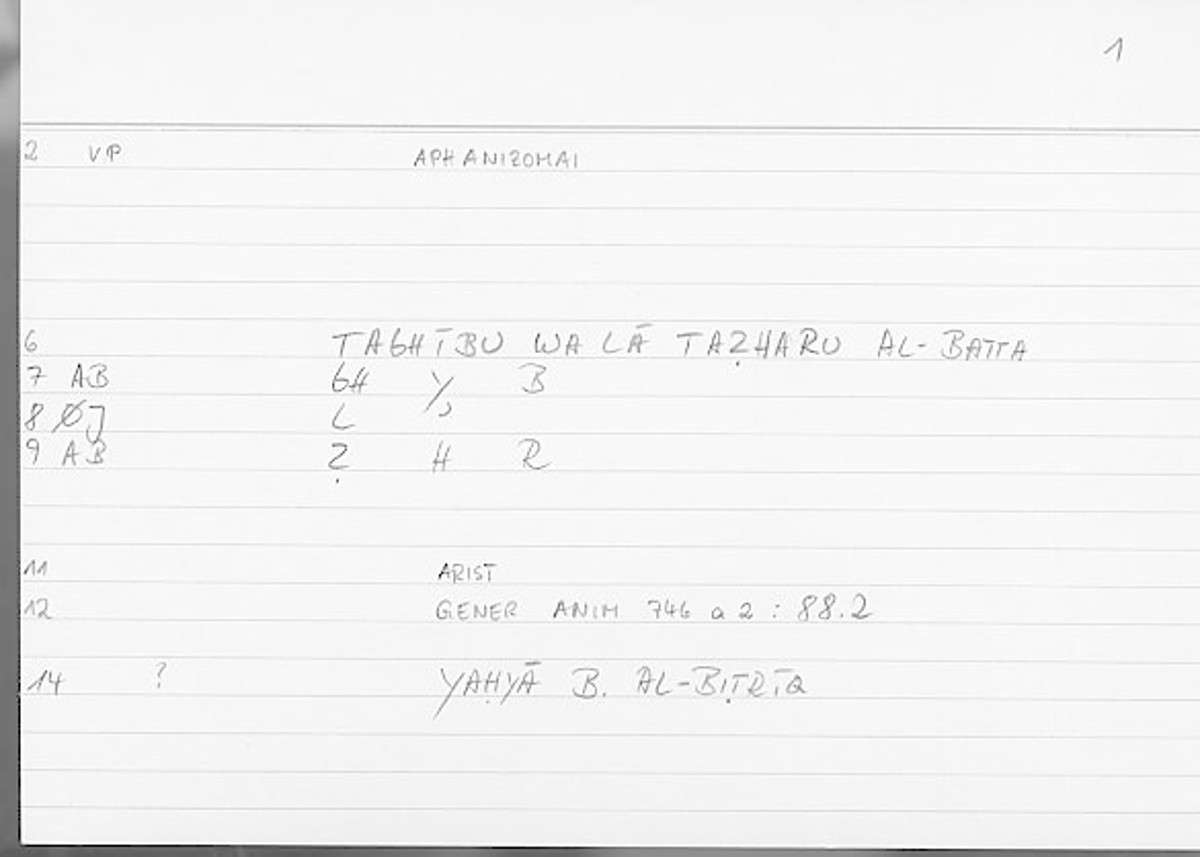 1
2 VP APHANIZOMAI
6 TAGHĪBU WA LĀ TAẒHARU AL-BATTA
7 AB GH Y, B
8 ØJ L
9 AB Ẓ H R
11 ARIST
12 GENER ANIM 746 a 2 : 88.2
14 ? YAḤYĀ B. AL-BIṬRĪQ